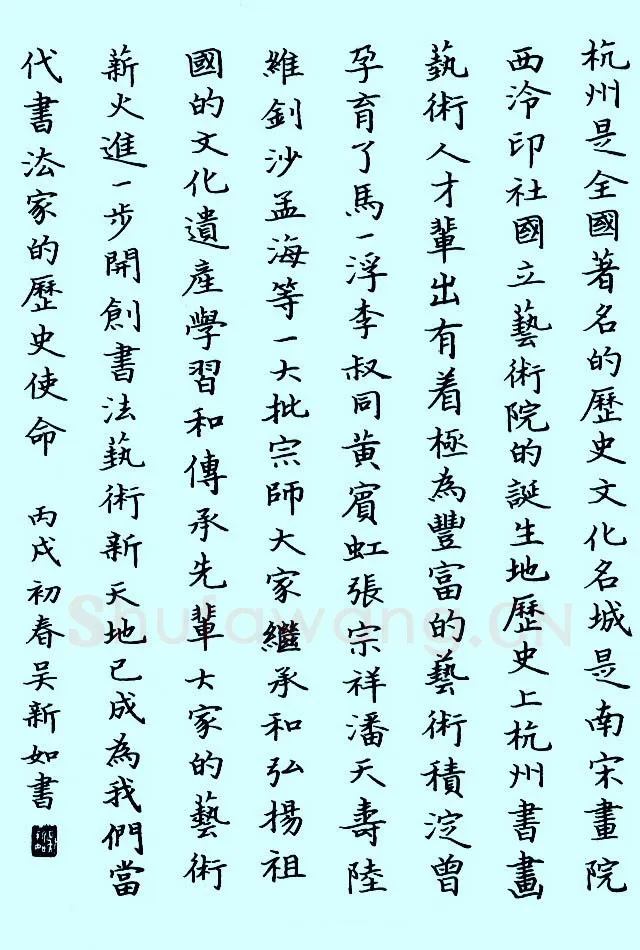 杭州是全國著名的歷史文化名城是南宋畫院
西泠印社國立藝術院的誕生地歷史上杭州書畫
藝術人才輩出有着極為豐富的藝術積淀曾
孕育了馬一浮李叔同黄賓虹張宗祥潘天壽陸
維釗沙孟海等一大批宗師大家繼承和弘揚祖
國的文化遺產學習和傳承先輩大家的藝術
薪火進一步開創書法藝術新天地已成為我們當
代書法家的歷史使命 丙戌初春吴新如書
Shufawang.CN